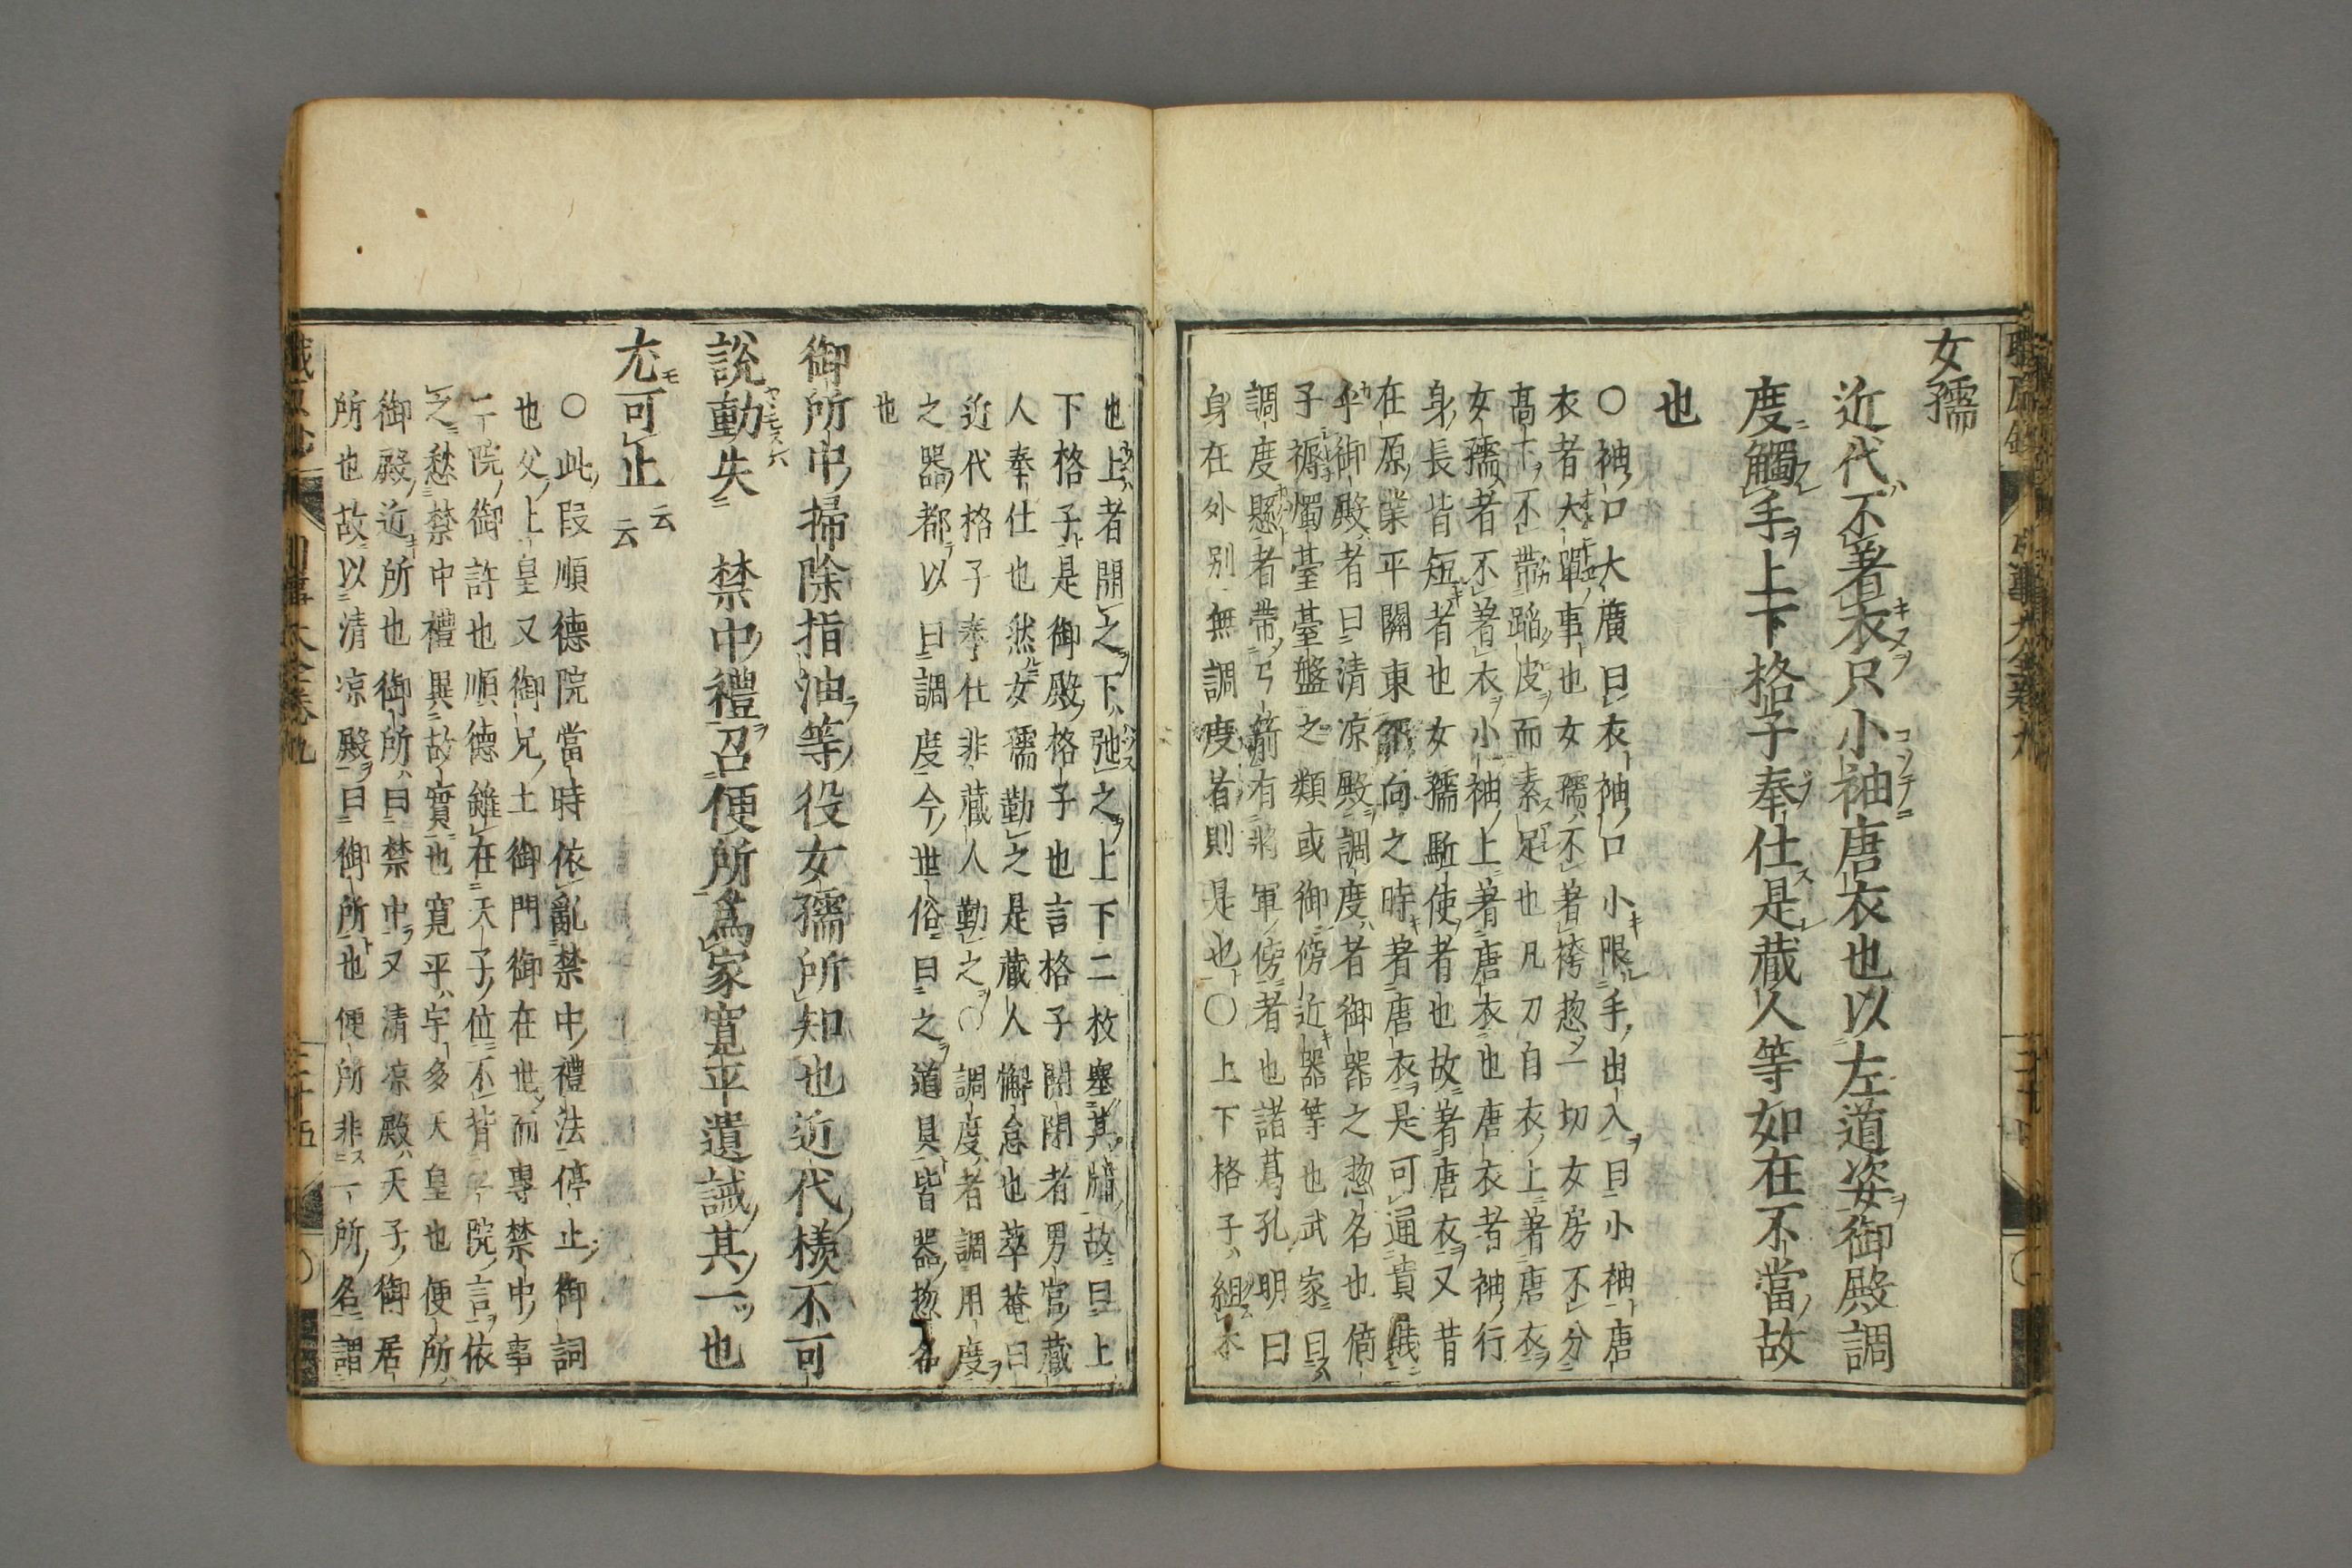 女孺
近代不著衣只小袖唐衣也以左道姿御殿調
度觸手上下格子奉仕是蔵人等如在不當故
也
〇袖口大廣曰衣袖口小限手出入曰小袖唐
衣者大單事也女孺不著袴惣一切女房不分
髙下不帶蹈皮而素足也凡刀自衣上著唐衣
女孺者不著衣小袖上著唐衣也唐衣者袖行
身長皆短者也女孺駈使者也故著唐衣又昔
在原業平關東下向之時著唐衣是可通貴賎
乎御殿者曰清凉殿調度者御器之惣名也脩
子褥燭臺臺盤之類或御傍近器等也武家曰
調度懸者帶弓箭有将軍傍者也諸葛孔明曰
身在外别無調度者則是也〇上下格子組木
也上者開之下弛之上下二枚塞其牖故曰上
下格子是御殿格子也言格子開閉者男官蔵
人奉仕也然女孺勤之是蔵人懈怠也萃菴曰
近代格子奉仕非蔵人勤之〇調度者調用度
之器都以曰調度今世俗曰之道具皆器惣名
也
御所中掃除指油等役女孺所知也近代様不可
說動失 禁中禮召便所為家寛平遺誡其一也
尤可止云云
〇此段順德院當時依亂禁中禮法停止御詞
也父上皇又御兄土御門御在世而專禁中事
二院御許也順德雖在天子位不背二院言依
之愁禁中禮異故實也寛平宇多天皇也便所
御殿近所也御所曰禁中又清凉殿天子御居
所也故以清凉殿曰御所也便所非一所名謂